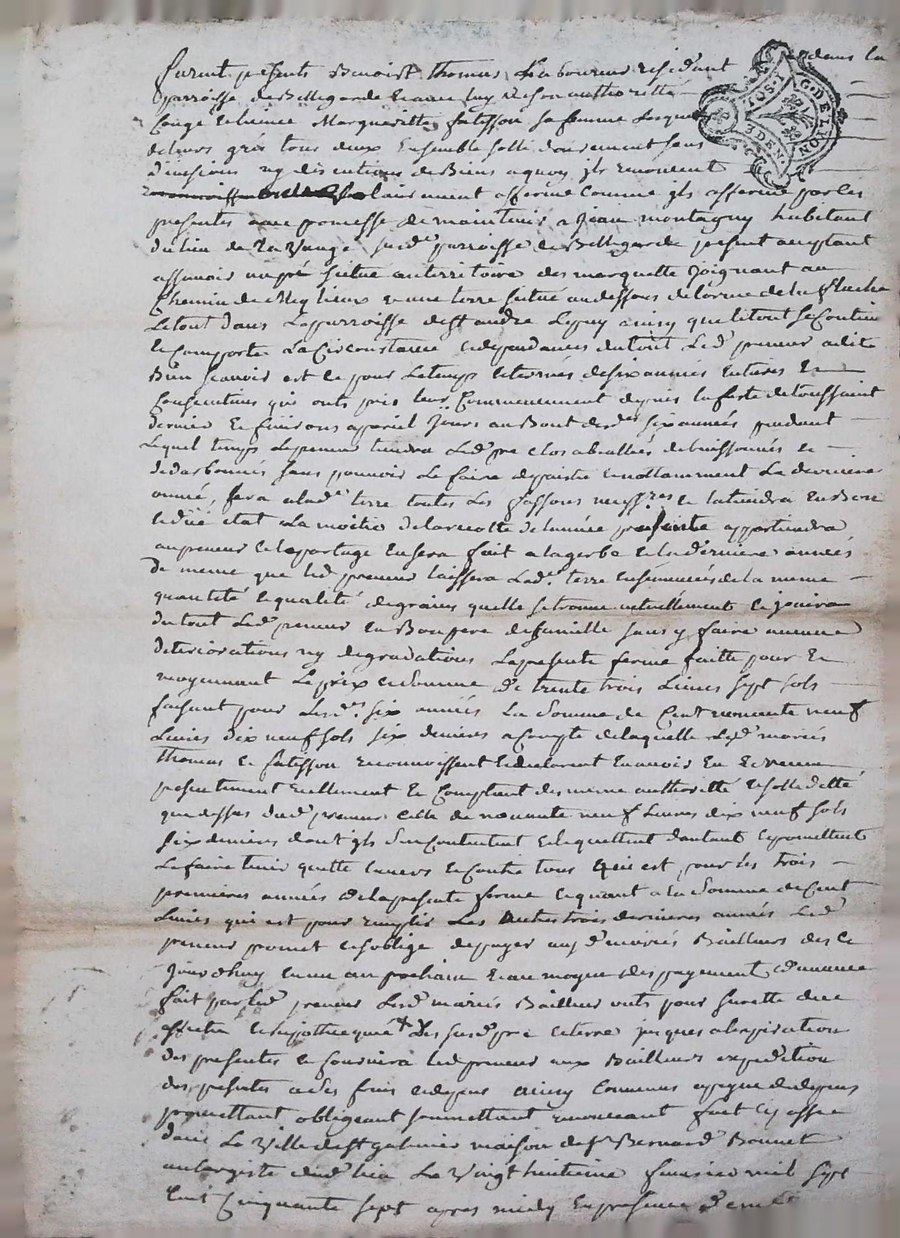 furent présents Benoist Thomas Laboureur résidant dans la
parroisse de Bellegarde et avec luy et de son authorité
Congé et licence Margueritte fatisson sa femme lesquels
de leurs gréz tous deux Ensemble sollidairement sans
divisions ny discutions de Biens a quoy ils renoncent
afferme comme ils afferme par ces
presentes avec promesse de maintenir a Jean montagny habitant
du lieu de la susd.e parroisse de Bellegarde present acceptant
assavoir un pré situé au territoire des marquette Joignant au
Chemin de et une terre situé au dessous de
Le tout dans La parroisse de St andre Le puy ainsy que le tout se Contient
se Comporte La Circonstance et dependances du tout Led preneur a dit
Bien scavoir est ce pour Le temps et termes de six années Entieres Et
Consecutives qui onts pris leur Commencement depuis la feste de toussaint
dernier Et finirons a pareil Jours au Bout desd. six années pendant
Lequel temps Le preneur tiendra Led. pré clos de buissonnés et
sans pouvoir Le faire depaistre et nottamment La derniere
année, fera a lad.e terre toutes Les fassons necess.res Et la tiendra En Bon
et düe état La moitié de la recolte de l'année presente appartiendra
au preneur et le partage En sera fait a la gerbe et la derniere années
de meme que led. preneur laissera Lad.e terre Ensemencés de la meme
quantité et qualité de grains quelle se trouve actuellement Et jouira
du tout Led. preneur En Bon pere de famille sans y faire aucune
deteriorations ny degradations La presente ferme faitte pour Et
moyennant Le prix et somme de trente trois Livres sept sols
faisant pour Lesd. six années La Somme de Cent nonante neuf
Livres dix neuf sols six deniers a Compte de laquelle Lesd. mariés
Thomas Et fatisson reconnoissent et declarent En avoir Eu Et receu
presentement reellement Et Comptant de meme authorité et sollidité
que dessus dud. preneur Celle de nonante neuf Livres dix neuf sols
six deniers dont ils s'en contentent Et le quittent d'autant Et promettent
Le faire tenir quitte Envers et Contre tous qui est pour les trois
premieres années de la presente ferme Et quant a la Somme de Cent
Livres qui est pour remplir Les autres trois dernieres années Led.
preneur promet et s'oblige de payer auxd. mariés Bailleurs de Ce
jourd'huy En un an prochain Et au moyen des payement d'avance
fait par led. preneur Lesd. mariés Bailleur onts pour surette
affecté et hypothequé Les susd. pré et terre jusques a l'expiration
des presentes Et fournira led. preneur aux Bailleurs expedition
des presentes a ses frais et depens ainsy Convenus a peyne de depens
promettant obligeant soumettant renonceant fait Et passé
dans La Ville de St galmier maison de Sr. Bernard Bonnet
aubergiste dud. lieu Le Vingt huitieme janvier mil sept
Cent Cinquante sept apres midy En presence
G. DE LYON
1 SOL
3 DEN